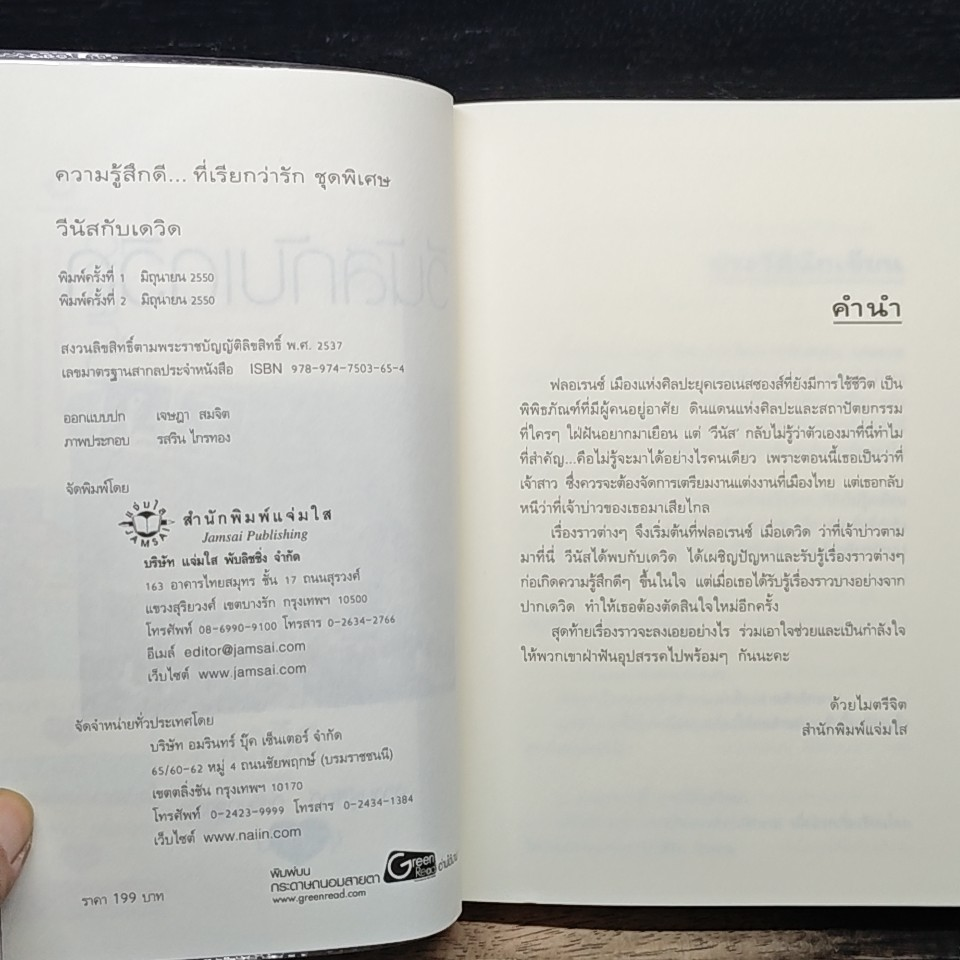 ความรู้สึกดี... ที่เรียกว่ารัก ชุดพิเศษ
วีนัสกับเดวิด
พิมพ์ครั้งที่ 1 มิถุนายน 2550
พิมพ์ครั้งที่ 2 มิถุนายน 2550
สงวนลิขสิทธิ์ตามพระราชบัญญัติลิขสิทธิ์ พ.ศ. 2537
เลขมาตรฐานสากลประจำหนังสือ ISBN 978-974-7503-65-4
ออกแบบปก เจษฎา สมจิต
ภาพประกอบ รสริน ไกรทอง
จัดพิมพ์โดย
แจ่มใส
JAMSAI
สำนักพิมพ์แจ่มใส
Jamsai Publishing
บริษัท แจ่มใส พับลิชชิ่ง จำกัด
163 อาคารไทยสมุทร ชั้น 17 ถนนสุรวงศ์
แขวงสุริยวงศ์ เขตบางรัก กรุงเทพฯ 10500
โทรศัพท์ 08-6990-9100 โทรสาร 0-2634-2766
อีเมล์ editor@jamsai.com
เว็บไซต์ www.jamsai.com
จัดจำหน่ายทั่วประเทศโดย
บริษัท อมรินทร์ บุ๊ค เซ็นเตอร์ จำกัด
65/60-62 หมู่ 4 ถนนชัยพฤกษ์ (บรมราชชนนี)
เขตตลิ่งชัน กรุงเทพฯ 10170
โทรศัพท์ 0-2423-9999 โทรสาร 0-2434-1384
เว็บไซต์ www.naiin.com
พิมพ์บน
กระดาษถนอมสายตา
www.greenread.com
Green
Read
ราคา 199 บาท
คำนำ
ฟลอเรนซ์ เมืองแห่งศิลปะยุคเรอเนสซองส์ที่ยังมีการใช้ชีวิต เป็น
พิพิธภัณฑ์ที่มีผู้คนอยู่อาศัย ดินแดนแห่งศิลปะและสถาปัตยกรรม
ที่ใครๆ ใฝ่ฝันอยากมาเยือน แต่ ‘วีนัส’ กลับไม่รู้ว่าตัวเองมาที่นี่ทำไม
ที่สำคัญ...คือไม่รู้จะมาได้อย่างไรคนเดียว เพราะตอนนี้เธอเป็นว่าที่
เจ้าสาว ซึ่งควรจะต้องจัดการเตรียมงานแต่งงานที่เมืองไทย แต่เธอกลับ
หนีว่าที่เจ้าบ่าวของเธอมาเสียไกล
เรื่องราวต่างๆ จึงเริ่มต้นที่ฟลอเรนซ์ เมื่อเดวิด ว่าที่เจ้าบ่าวตาม
มาที่นี่ วีนัสได้พบกับเดวิด ได้เผชิญปัญหาและรับรู้เรื่องราวต่างๆ
ก่อเกิดความรู้สึกดีๆ ขึ้นในใจ แต่เมื่อเธอได้รับรู้เรื่องราวบางอย่างจาก
ปากเดวิด ทำให้เธอต้องตัดสินใจใหม่อีกครั้ง
สุดท้ายเรื่องราวจะลงเอยอย่างไร ร่วมเอาใจช่วยและเป็นกำลังใจ
ให้พวกเขาฝ่าฟันอุปสรรคไปพร้อมๆ กันนะคะ
ด้วยไมตรีจิต
สำนักพิมพ์แจ่มใส